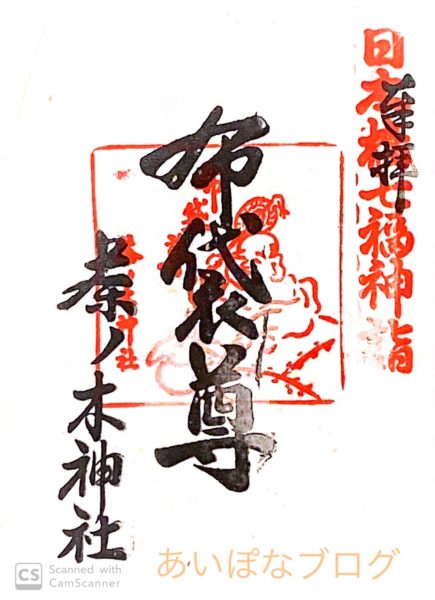 日本橋七福神詣
奉拝
布袋尊
茶ノ木神社
茶ノ木神社
あいぽなブログ
CS Scanned with
CamScanner